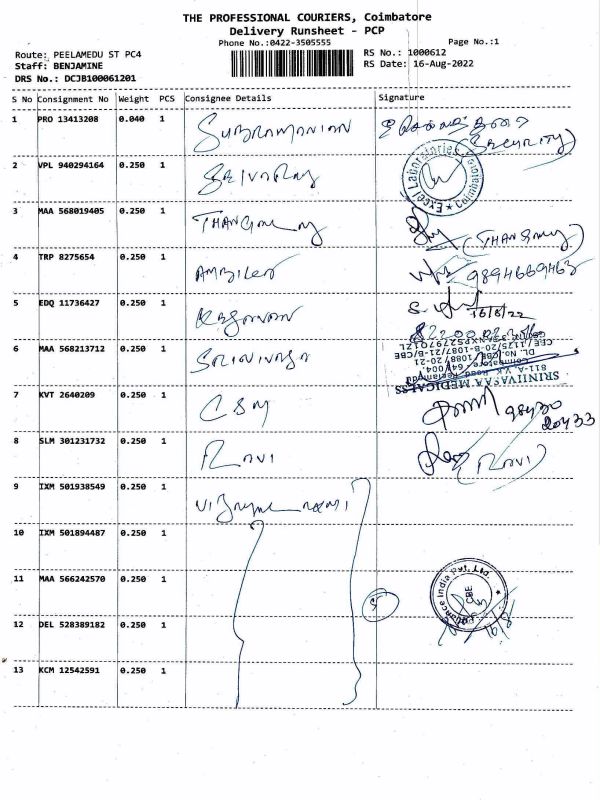 THE PROFESSIONAL COURIERS, Coimbatore
Delivery Runsheet - PCP
Phone No.:0422-3505555 Page No.:1
Route: PEELAMEDU ST PC4 RS No.: 1000612
Staff: BENJAMINE RS Date: 16-Aug-2022
DRS No.: DCJB100061201
S No Consignment No Weight PCS Consignee Details Signature
1 PRO 13413208 0.040 1 SUBRAMANIAN
(SECURITY)
Excel Laboratories Coimbatore
2 VPL 940294164 0.250 1
3 MAA 568019405 0.250 1 THANGARAJ (THANGARAJ)
4 TRP 8275654 0.250 1 9894669463
5 EDQ 11736427 0.250 1 16/8/22
6 MAA 568213712 0.250 1 SRINIVASA
SRINIVASAA MEDICALSS
7 KVT 2640209 0.250 1 CSM 98430
20433
8 SLM 301231732 0.250 1 RAVI (RAVI)
9 IXM 501938549 0.250 1
10 IXM 501894487 0.250 1
11 MAA 566242570 0.250 1 5
India Pvt. Ltd. CBE
12 DEL 528389182 0.250 1 16/8
13 KCM 12542591 0.250 1